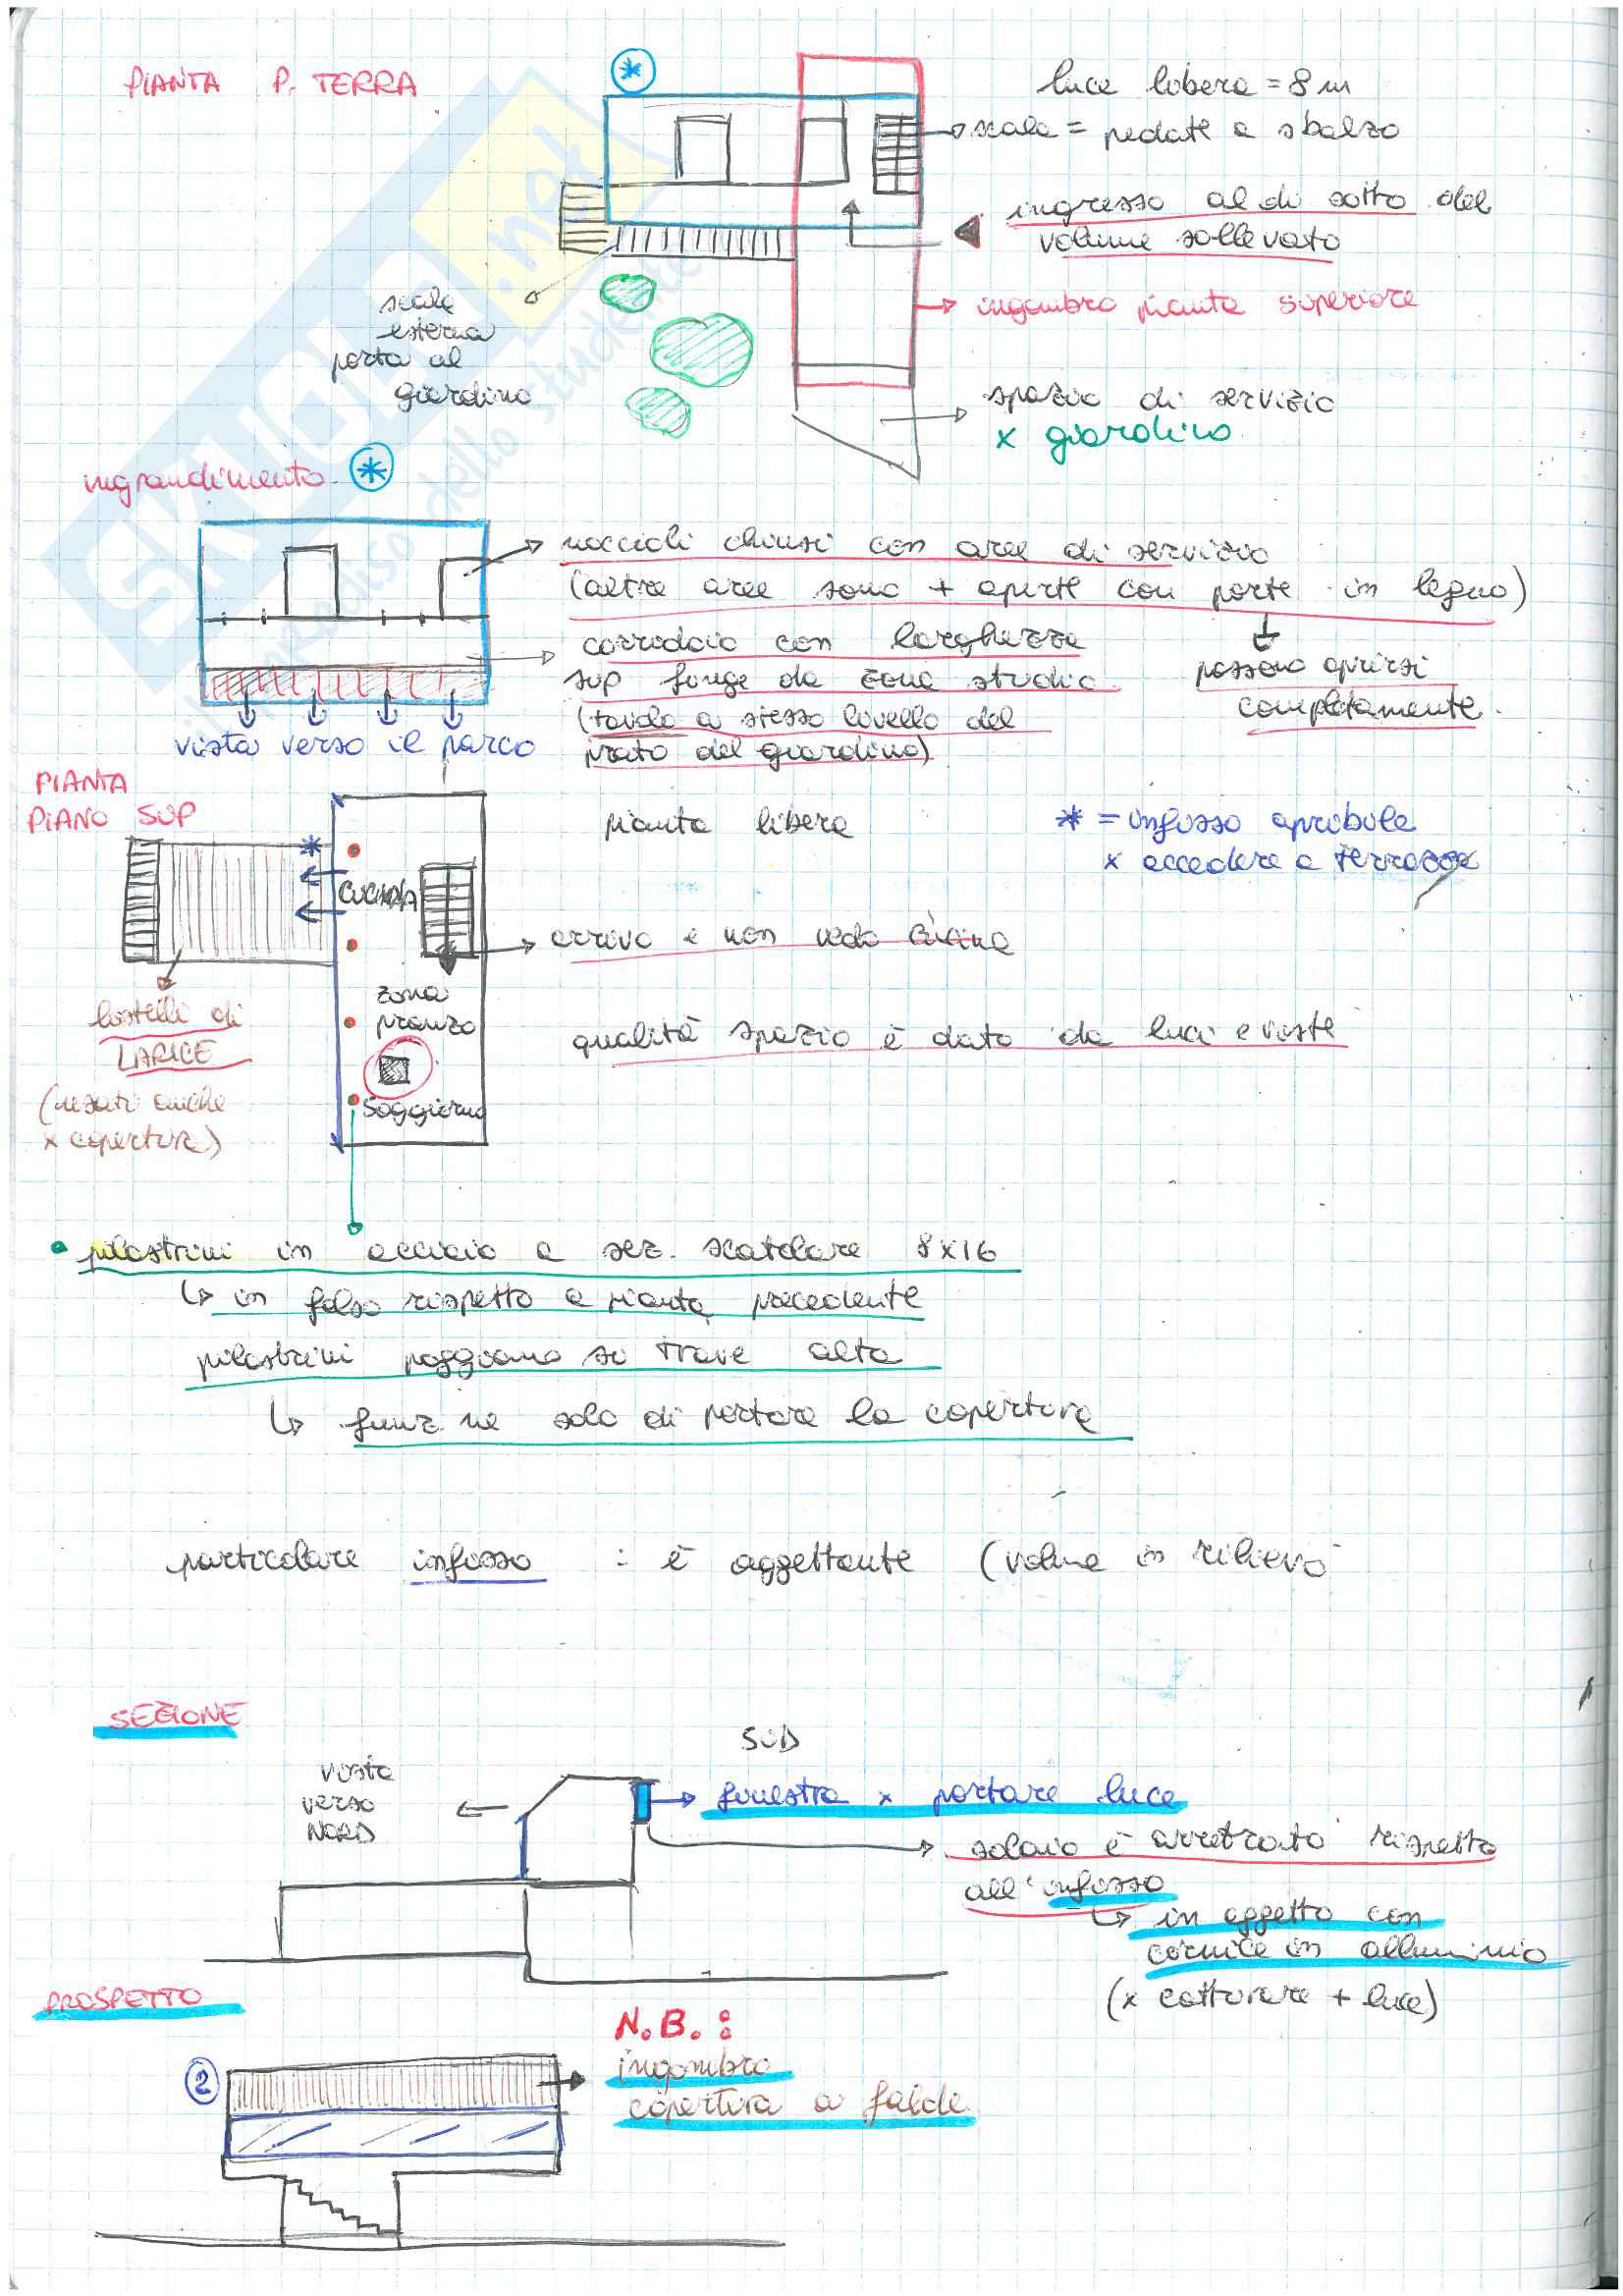 PIANTA P. TERRA
luce libera = 8 m
scala = pedate a sbalzo
ingresso al di sotto del
volume sollevato
ingombro pianta superiore
scala
esterna
porta al
giardino
spazio di servizio
x giardino
ingrandimento *
noccioli chiusi con aree di servizio
(altre aree sono + aperte con porte in legno)
possono aprirsi
completamente.
corridoio con larghezza
sup funge da zona studio
(tavolo a stesso livello del
prato del giardino)
vista verso il parco
PIANTA
PIANO SUP
pianta libera
* = infisso apribile
x accedere a terrazza
CUCINA
arrivo e non vedo cucina
zona
pranzo
soggiorno
qualità spazio è dato da luci e viste
listelli di
LARICE
(usati anche
x copertura)
• pilastrini in acciaio a sez. scatolare 8x16
↳ in falso rispetto a pianta precedente
pilastrini poggiano su trave alta
↳ funz.ne solo di portare la copertura
particolare infisso : è aggettante (volume in rilievo
SEZIONE
SUD
vista
verso
NORD
finestra x portare luce
solaio è arretrato rispetto
all'infisso
↳ in aggetto con
cornice in alluminio
(x catturare + luce)
PROSPETTO
N.B. :
2
ingombro
copertura a falde
SKUOLA.net
il paradiso dello studente